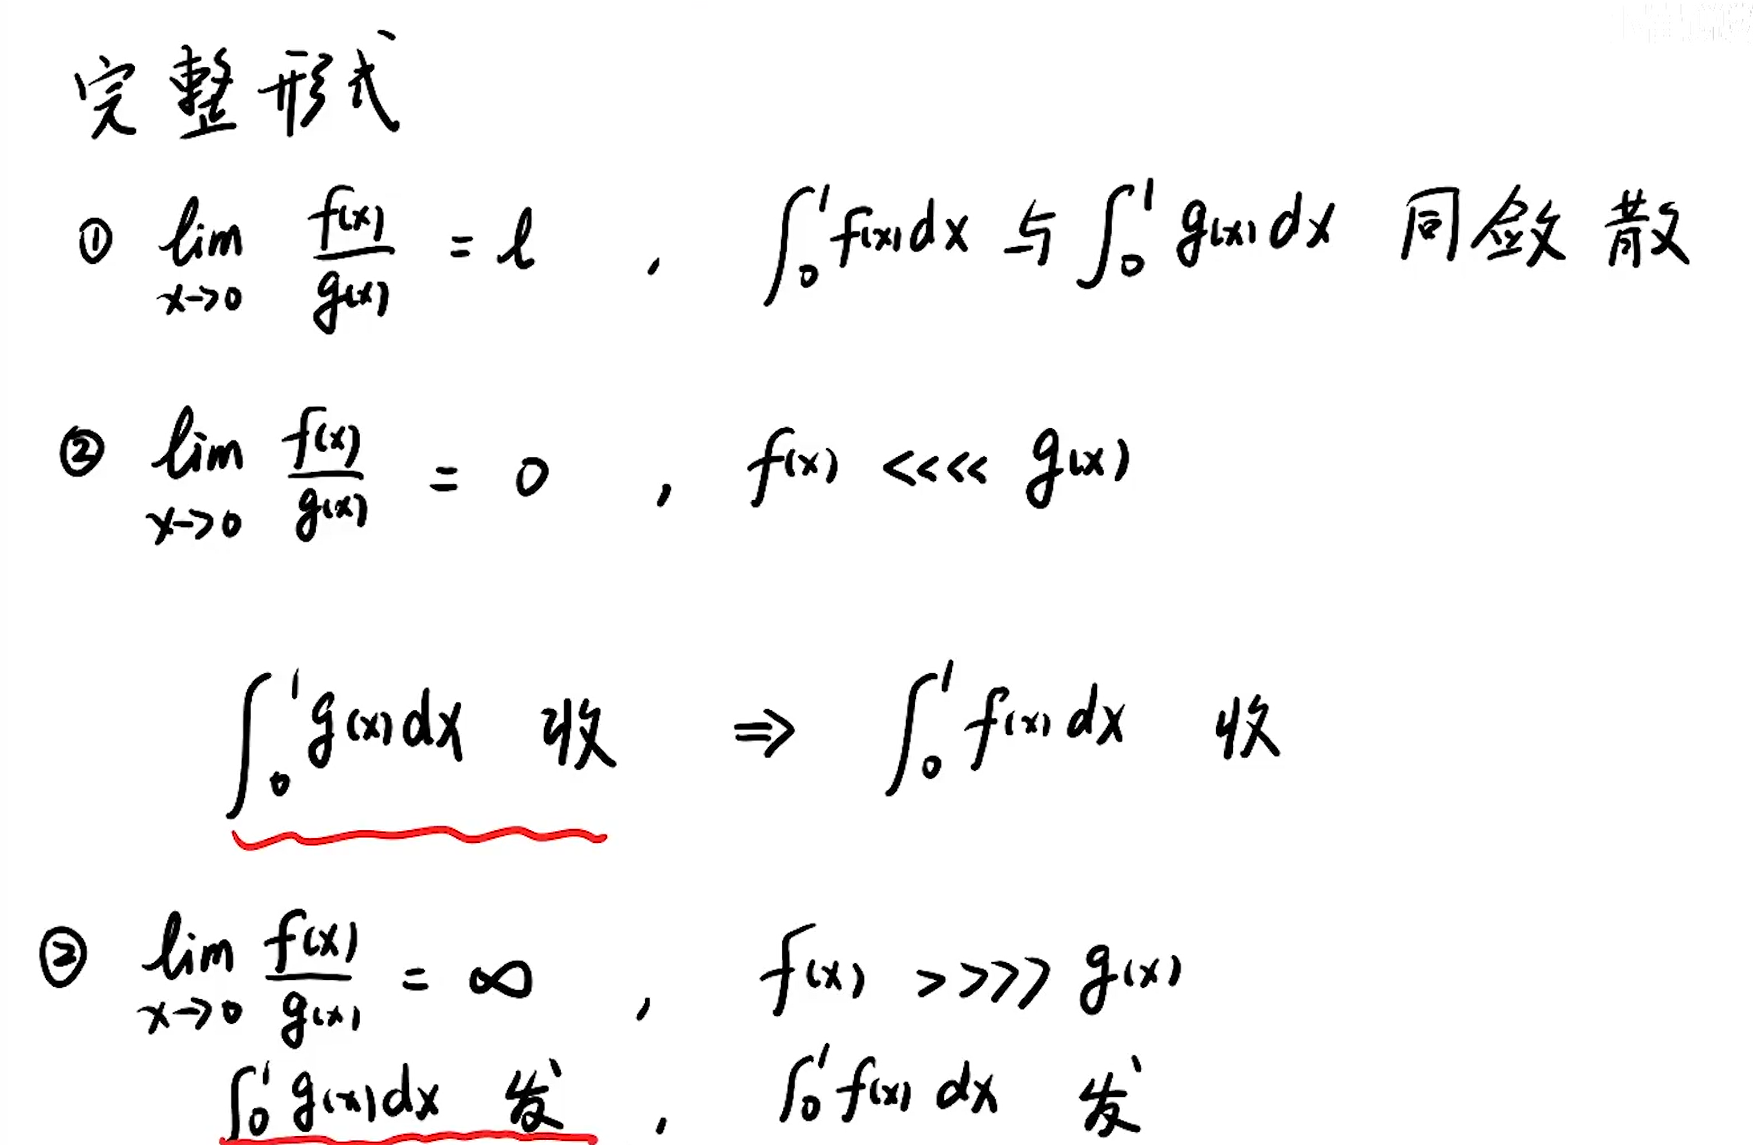 完整形式
① lim x→0 f(x)/g(x) = l , ∫₀¹ f(x)dx 与 ∫₀¹ g(x)dx 同敛散
② lim x→0 f(x)/g(x) = 0 , f(x) <<<< g(x)
∫₀¹ g(x)dx 收 ⇒ ∫₀¹ f(x)dx 收
② lim x→0 f(x)/g(x) = ∞ , f(x) >>>> g(x)
∫₀¹ g(x)dx 发 , ∫₀¹ f(x)dx 发